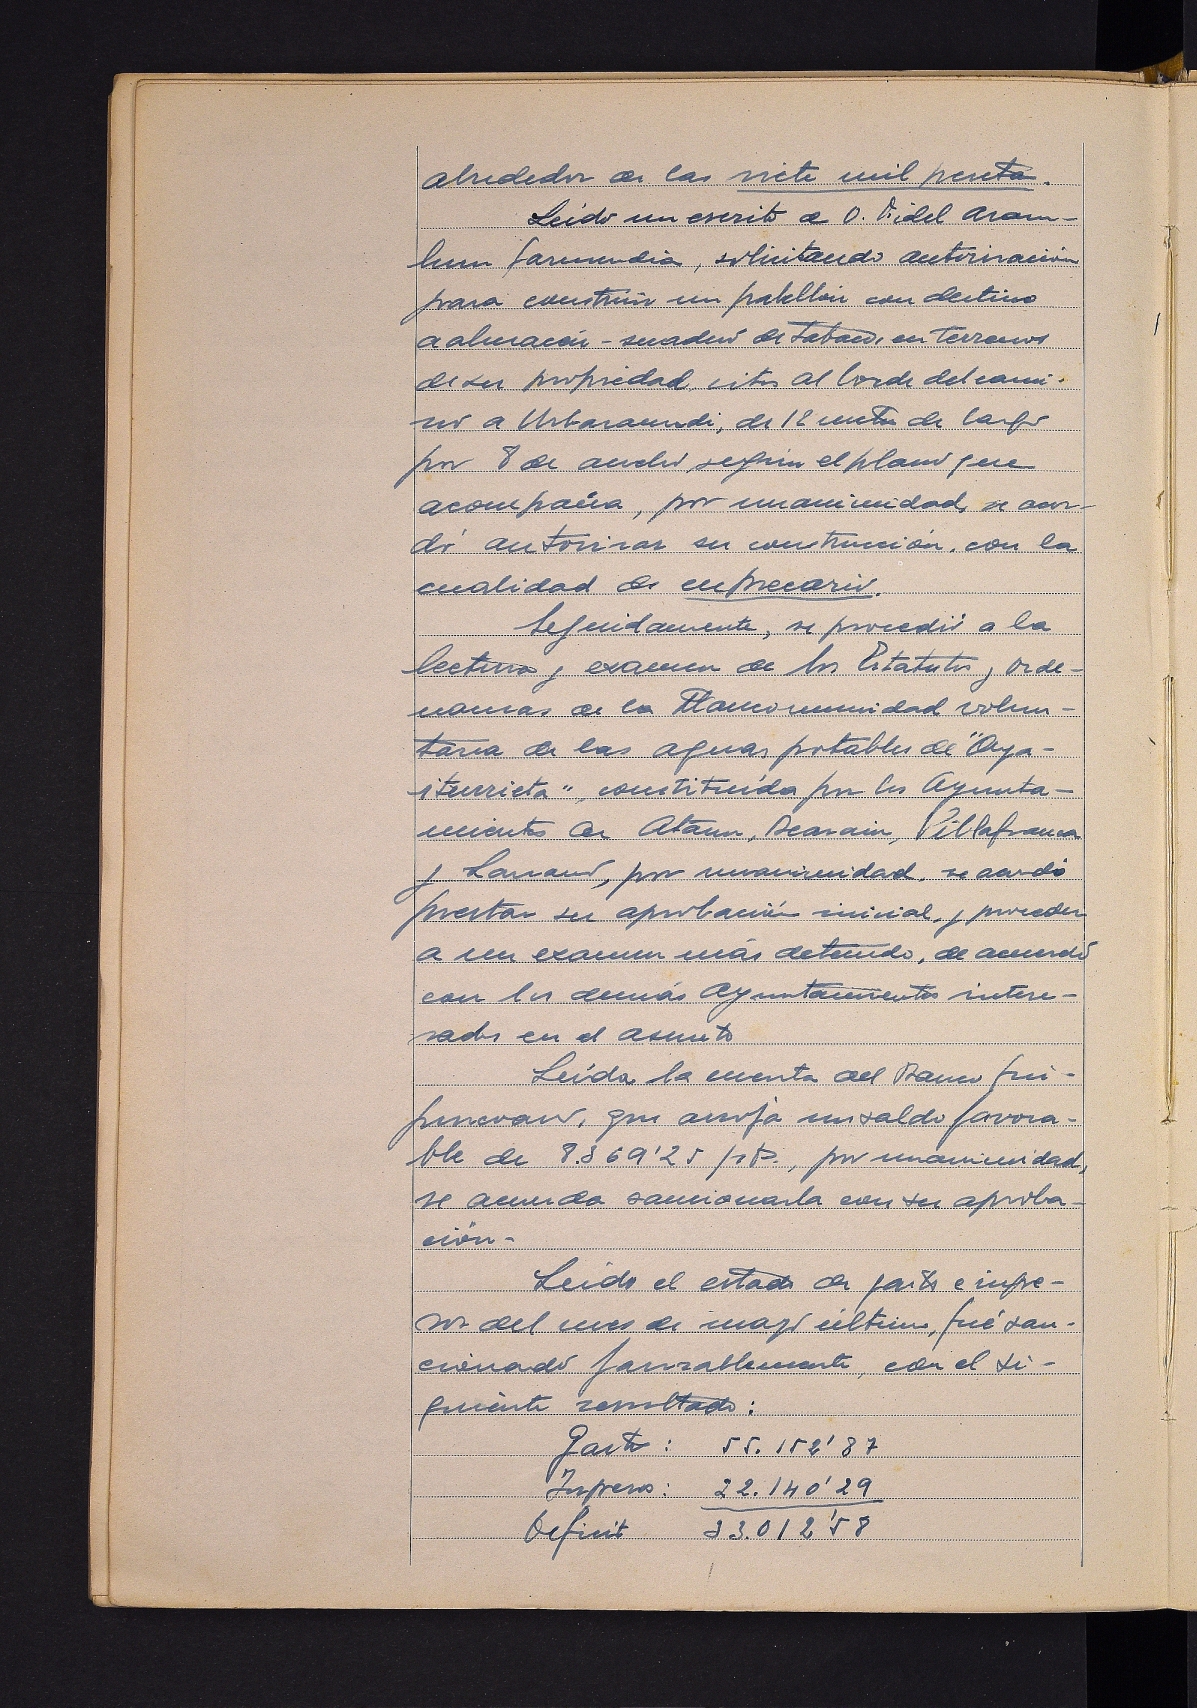 alrededor de las siete mil pesetas.
Leido un escrito de D. Fidel Aram-
buru Garmendia, solicitando autorización
para construir un pabellón con destino
a almacén-secadero de tabaco, en terrenos
de su propiedad, sitos al borde del cami-
no a Urbaraundi, de 12 metros de largo
por 8 de ancho según el plano que
acompaña, por unanimidad, se acor-
dó autorizar su construcción, con la
cualidad de en precario.
Seguidamente, se procedió a la
lectura y examen de los Estatutos y orde-
nanzas de la Mancomunidad volun-
taria de las aguas potables de "Oya-
iturrieta", constituída por los Ayunta-
mientos de Ataun, Beasain, Villafranca
y Lazcano, por unanimidad, se acordó
prestar su aprobación inicial, y proceder
a un examen más detenido, de acuerdo
con los demás Ayuntamientos intere-
sados en el asunto
Leida la cuenta del Banco Gui-
puzcoano, que arroja un saldo favora-
ble de 8.369'25 pts., por unanimidad,
se acuerda sancionarla con su aproba-
ción.-
Leido el estado de gastos e ingre-
sos del mes de mayo último, fué san-
cionado favorablemente, con el si-
guiente resultado:
Gastos: 55.152'87
Ingresos: 22.140'29
Deficit 33.012'58